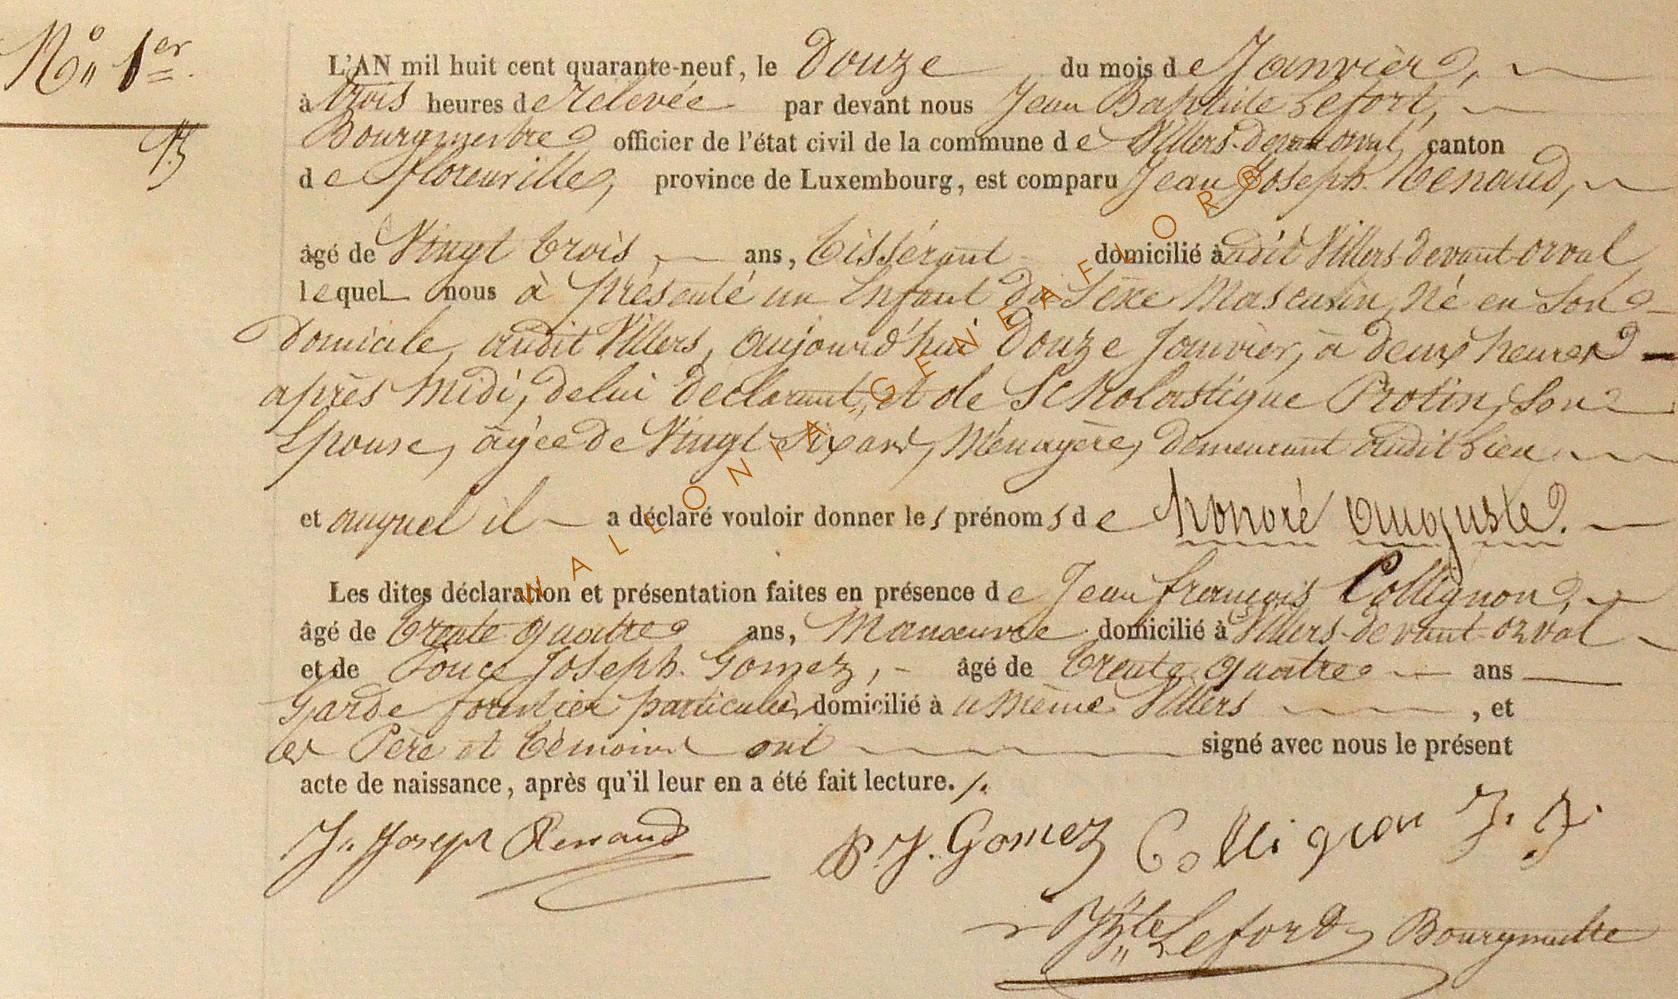 N° 1er
L'AN mil huit cent quarante-neuf, le Douze du mois de Janvier,
à trois heures de relevée par devant nous Jean Baptiste Lefort,
Bourgmestre officier de l'état civil de la commune de Villers-devant-orval, canton
de florenville, province de Luxembourg, est comparu Jean Joseph Renaud,
âgé de Vingt trois ans, tissérant domicilié audit Villers devant-orval
lequel nous à présenté un Enfant du Sèxe Masculin, Né en Son
Domicile, audit Villers, aujourd'hui Douze Janvier, à deux heures
après Midi, de lui Déclarant, et de Scholastique Protin, Son
Epouse, âgée de Vingt Six ans, Ménagère, demeurant audit lieu
et auquel il a déclaré vouloir donner les prénoms de honoré auguste.
Les dites déclaration et présentation faites en présence de Jean françois Collignon,
âgé de trente quatre ans, Manœuvre domicilié à Villers-devant-orval
et de Joseph Gomez, âgé de trente quatre ans
Garde forestier particulier, domicilié à u même Villers, et
les Père et témoins ont signé avec nous le présent
acte de naissance, après qu'il leur en a été fait lecture./.
J. Joseph Renaud P. J. Gomez Collignon J. f.
J Bte Lefort Bourgmestre
WALLONIA-GENEAFLOR®